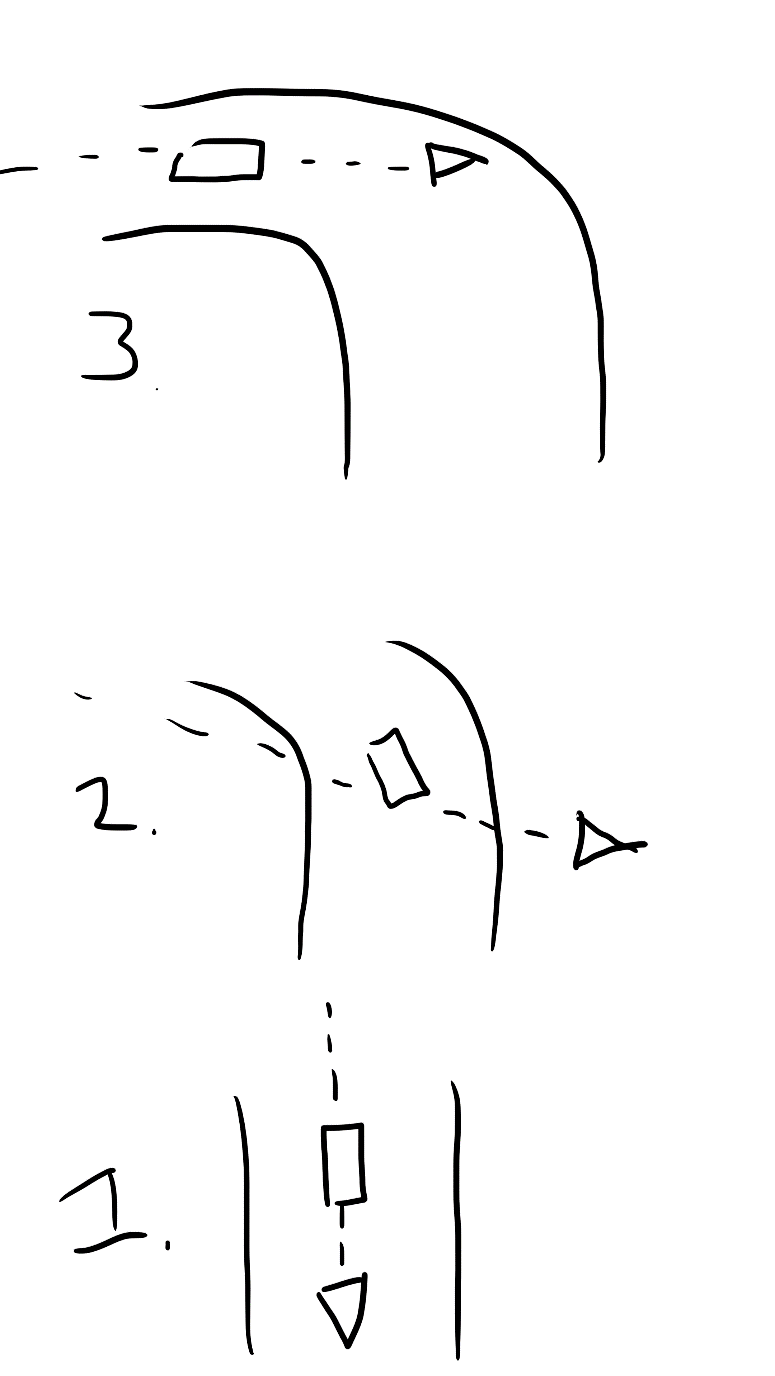 3.
2.
1.